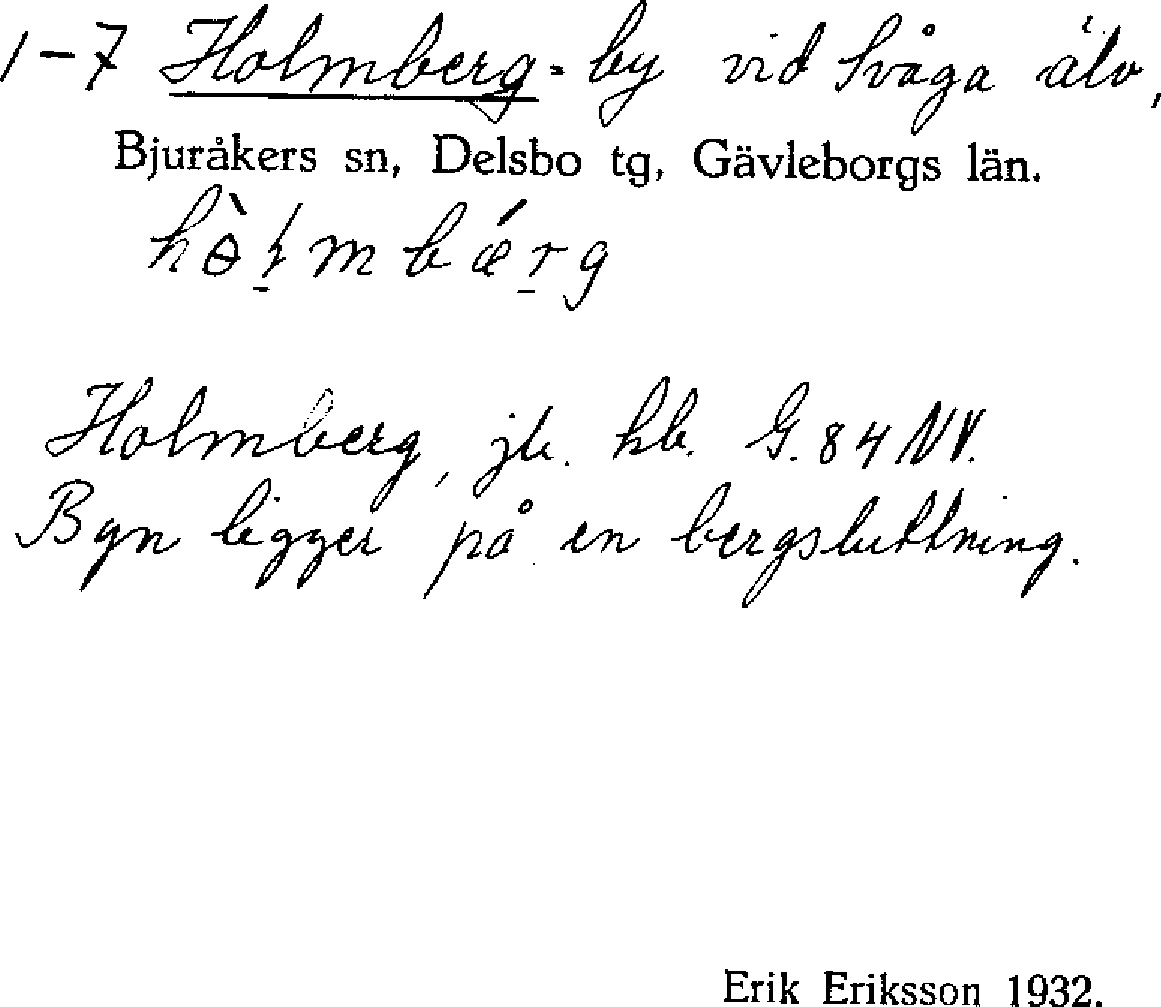 1-7 Holmberg - by vid Svåga älv,
Bjuråkers sn, Delsbo tg, Gävleborgs län.
hɵ̀ɫ̱mbǽṟg
Holmberg, jb. hb. G. 84 NV.
Byn ligger på en bergsluttning.
Erik Eriksson 1932.